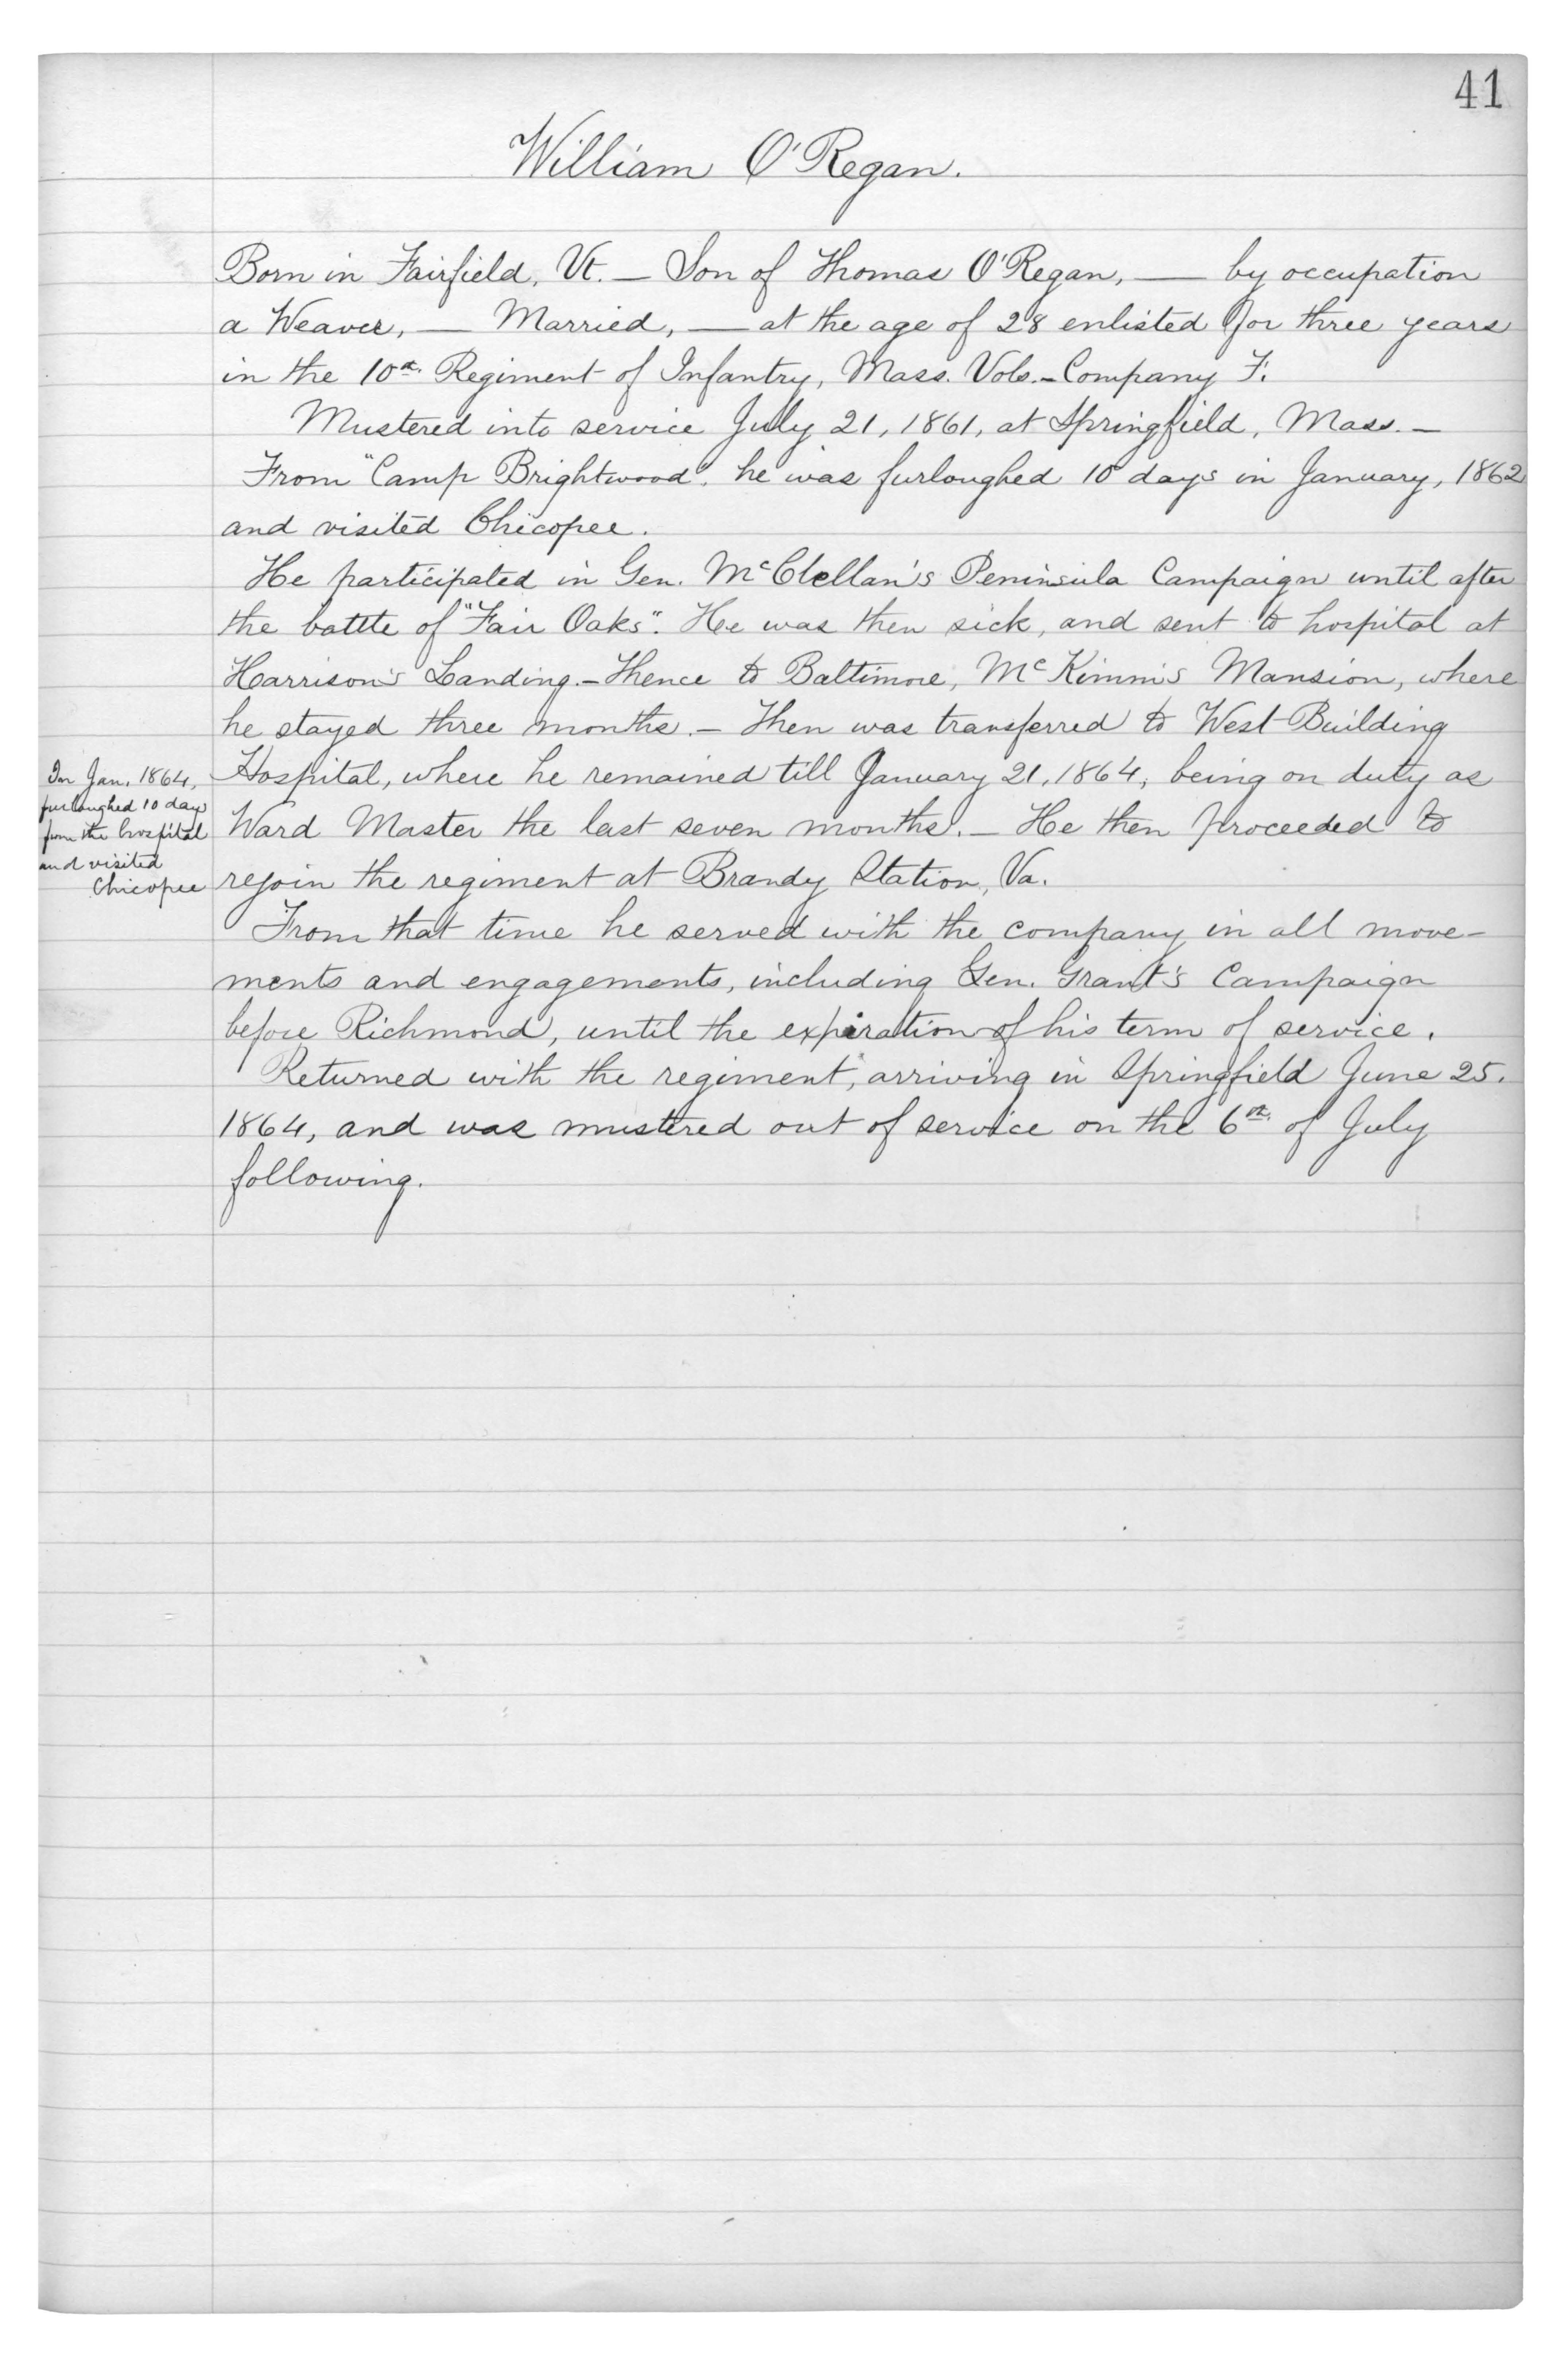 41
William O'Regan.
Born in Fairfield, Vt. — Son of Thomas O'Regan, — by occupation
a Weaver, — Married, — at the age of 28 enlisted for three years
in the 10th. Regiment of Infantry, Mass. Vols. - Company F.
Mustered into service July 21, 1861, at Springfield, Mass. —
From "Camp Brightwood". he was furloughed 10 days in January, 1862
and visited Chicopee.
He participated in Gen. McClellan's Peninsula Campaign until after
the battle of "Fair Oaks". He was then sick, and sent to hospital at
Harrison's Landing. - Thence to Baltimore, McKimm's Mansion, where
he stayed three months. — Then was transferred to West-Building
Hospital, where he remained till January 21, 1864, being on duty as
Ward Master the last seven months. — He then proceeded to
rejoin the regiment at Brandy Station, Va.
In Jan. 1864,
furloughed 10 days
from the hospital
and visited
Chicopee
From that time he served with the company in all move-
ments and engagements, including Gen. Grant's Campaign
before Richmond, until the expiration of his term of service.
Returned with the regiment, arriving in Springfield June 25.
1864, and was mustered out of service on the 6th. of July
following.